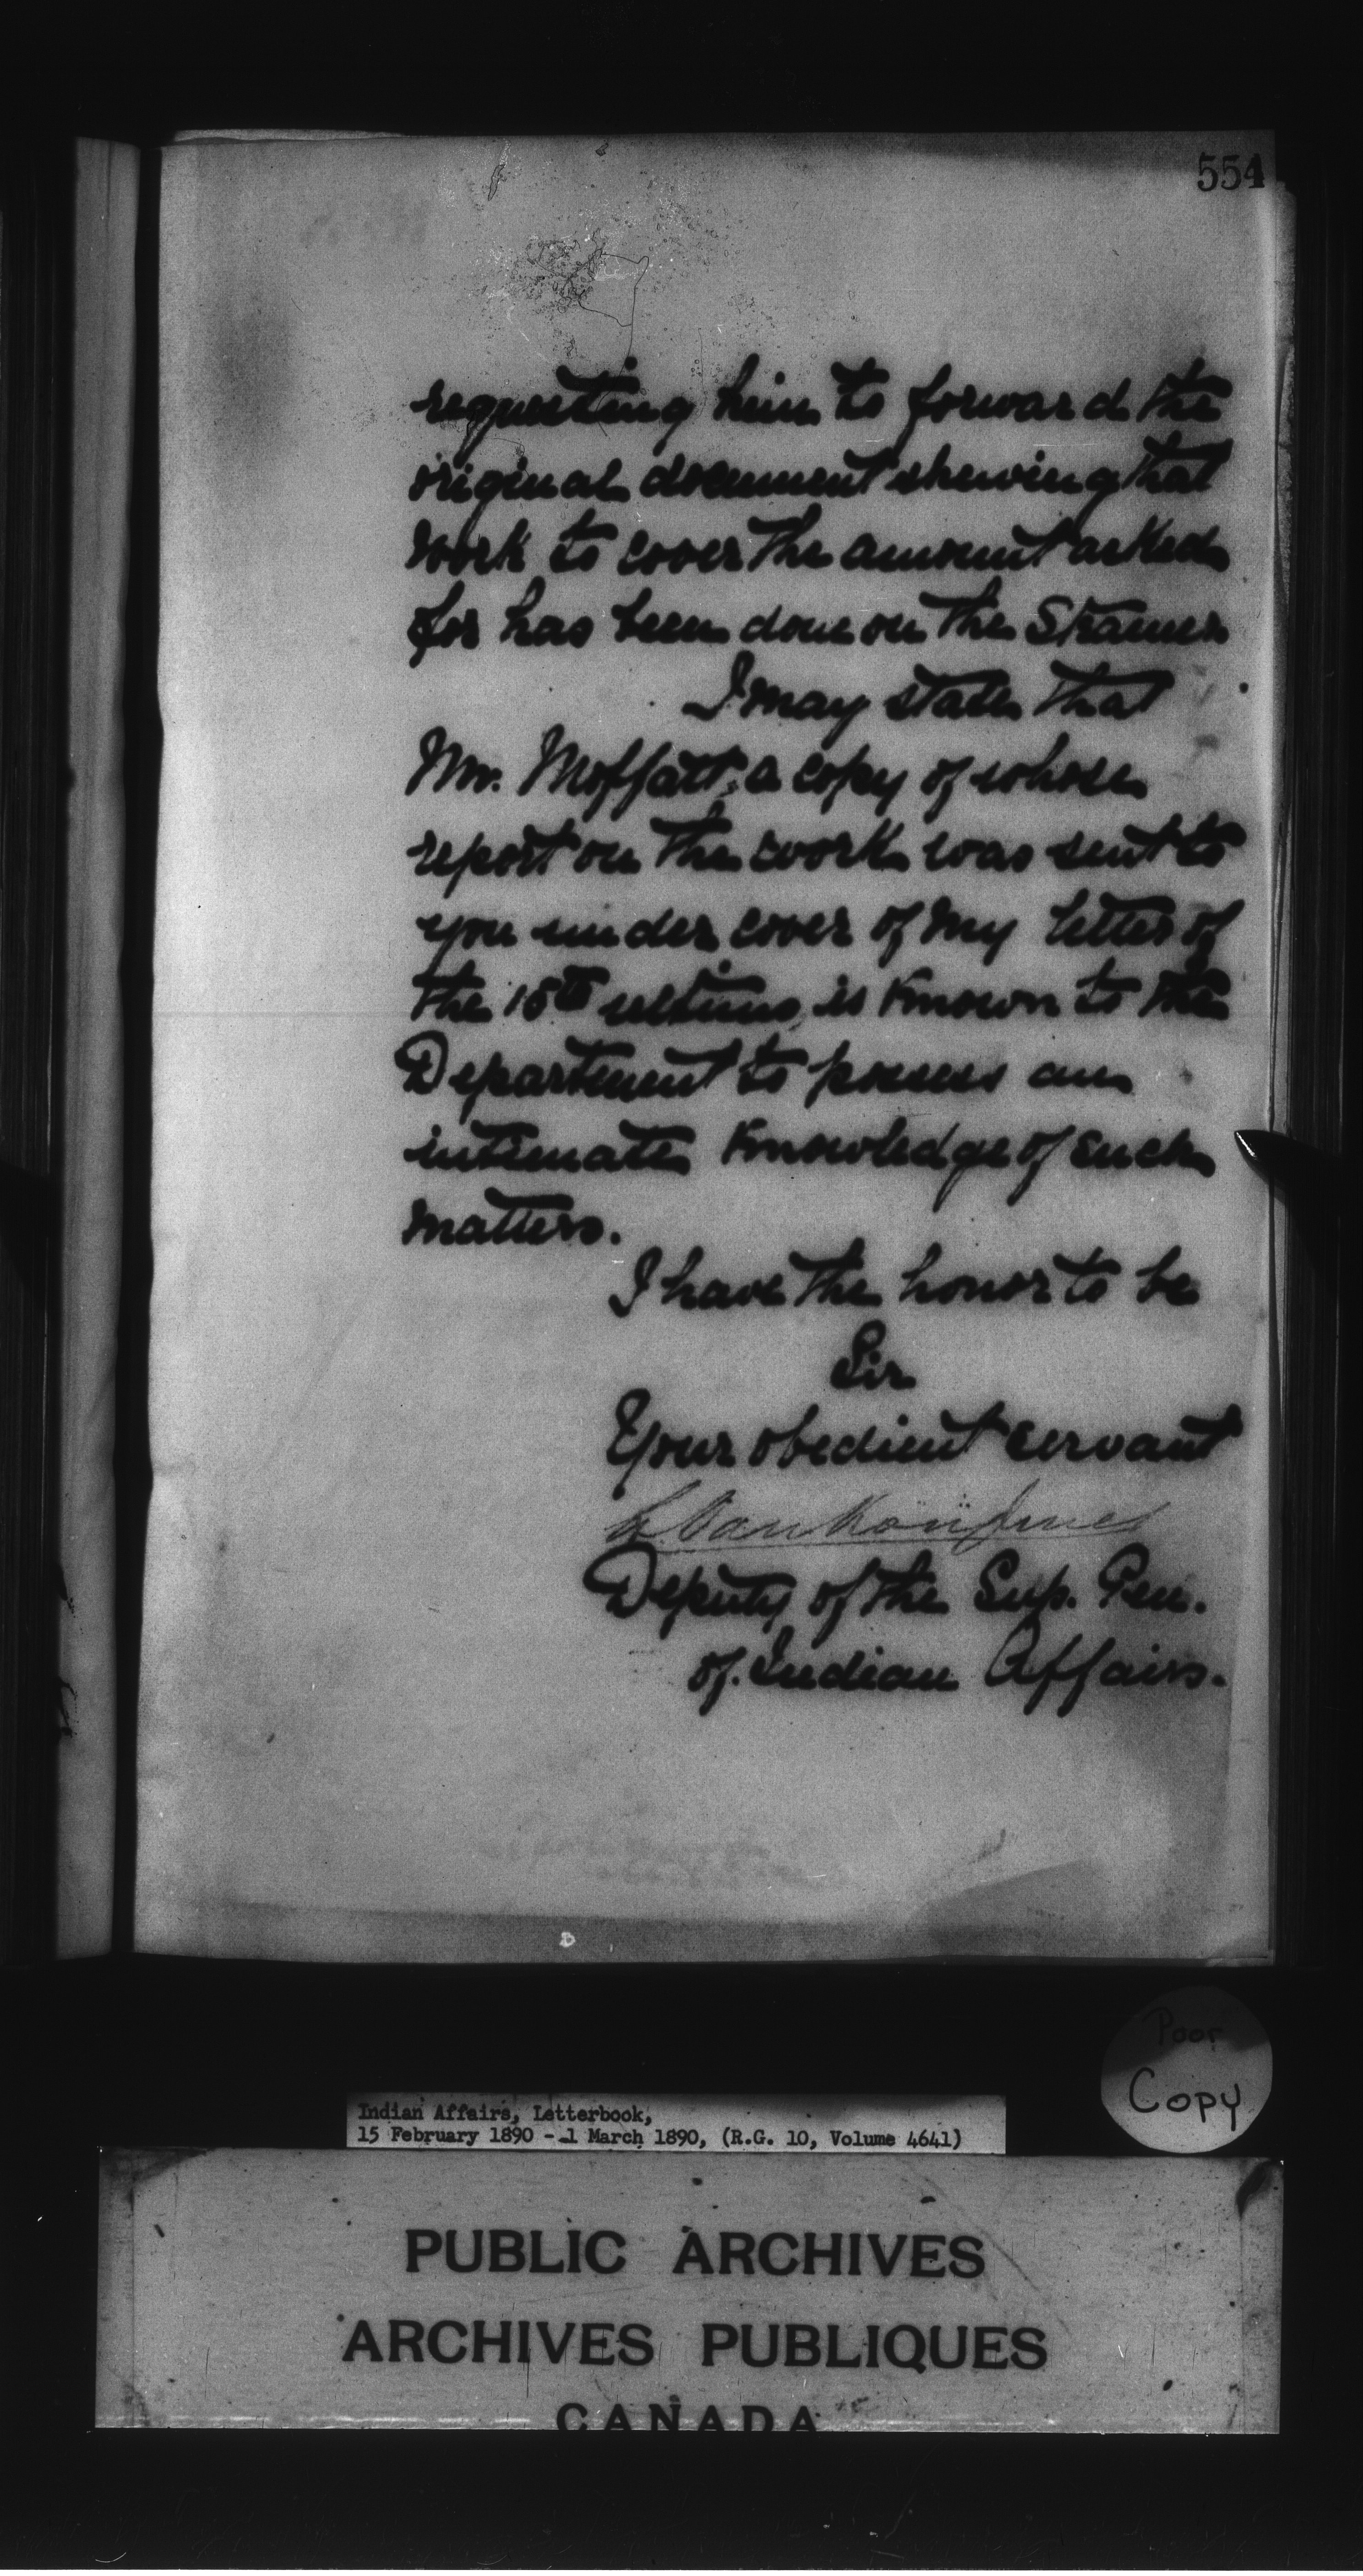 554
requesting him to forward the
original document shewing that
work to cover the amount asked
for has been done on the Steamer
I may state that
Mr. Moffatt, a copy of whose
report on the work was sent to
you under cover of my letter of
the 15th ultimo, is known to the
Department to possess an
intimate knowledge of such
matters.
I have the honor to be
Sir
Your obedient servant
L. VanKoughnet
Deputy of the Sup. Gen.
of Indian Affairs.
Poor
Copy
Indian Affairs, Letterbook,
15 February 1890 - 1 March 1890, (R.G. 10, Volume 4641)
PUBLIC ARCHIVES
ARCHIVES PUBLIQUES
CANADA